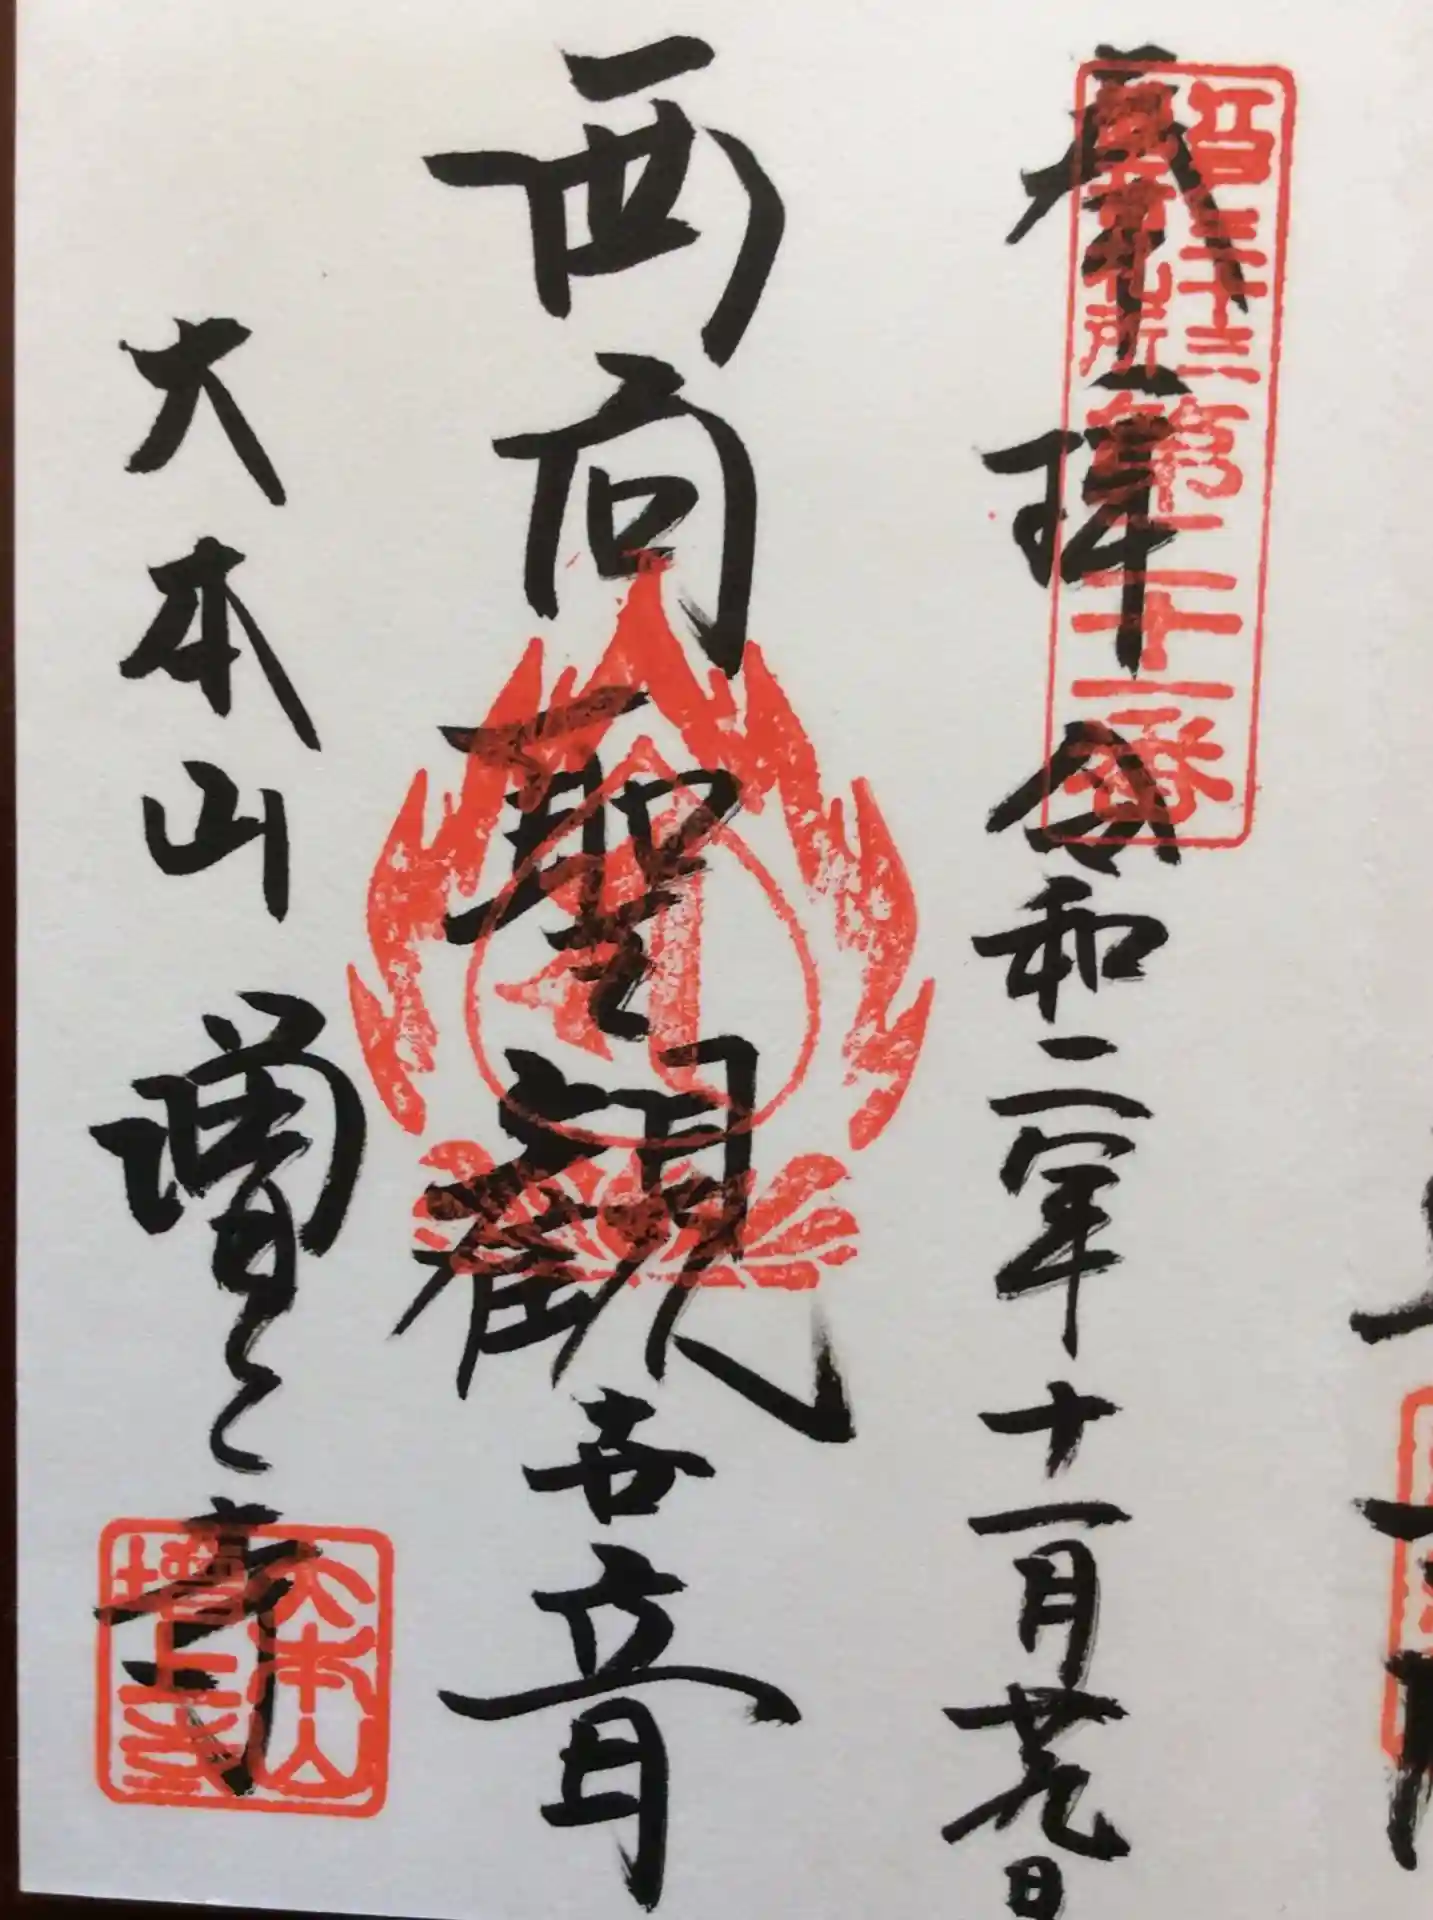 奉拝 令和二年十一月廿九日
江戸三十三
観音札所
第二十一番
西向聖観世音
大本山 増上寺
大本山
増上寺